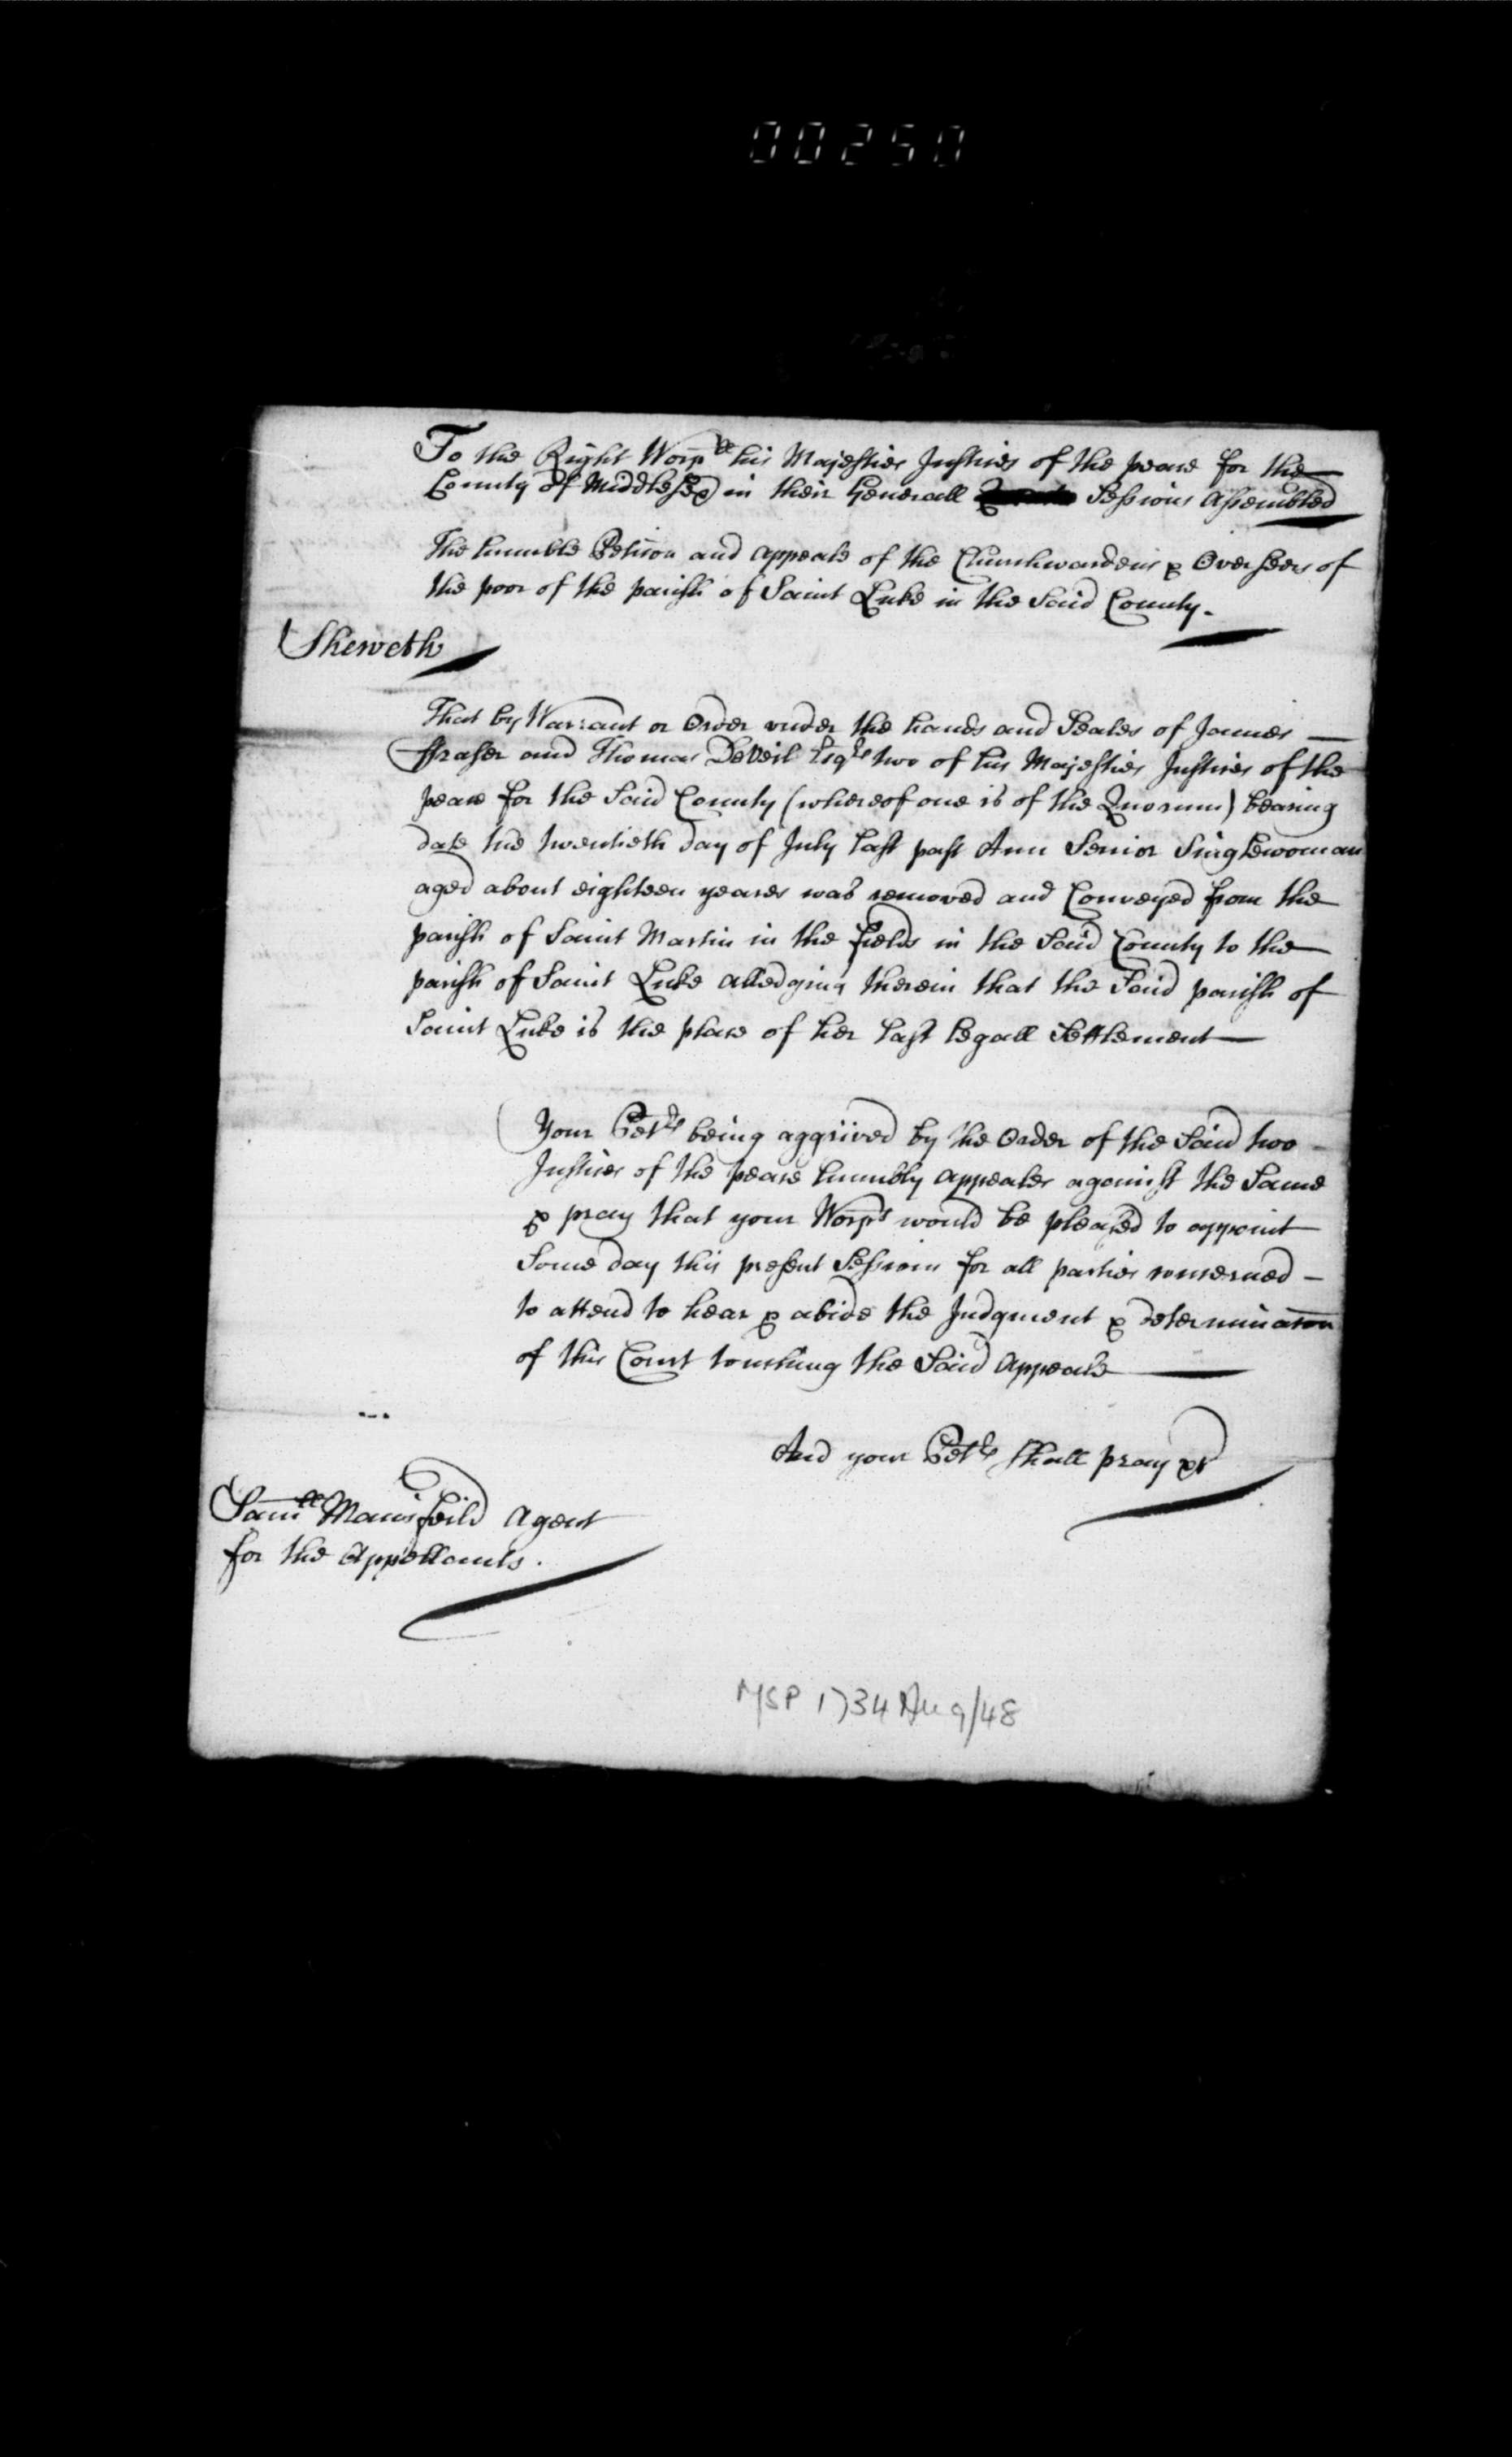 00250
To the Right Worp<sup>ll</sup> his Majesties Justices of the peace for the
County of Middlesex in their Generall Sessions Assembled
The humble Peticon and Appeale of the Churchwardens & Overseers of
the poor of the parish of Saint Luke in the Said County.
Sheweth
That by Warrant or Order under the hands and Seales of James
ffraser and Thomas DeVeil Esq<sup>rs</sup> two of his Majesties Justices of the
peace for the Said County (whereof one is of the Quorum) bearing
date the twentieth day of July last past Ann Senior Singlewoman
aged about eighteen yeares was removed and Conveyed from the
parish of Saint Martin in the fields in the Said County to the
parish of Saint Luke alledging therein that the Said parish of
Saint Luke is the place of her last legall Settlement
Your Pet<sup>rs</sup> being aggrived by the Order of the Said two
Justices of the peace humbly appeales against the Same
& pray that your Worp<sup>s</sup> would be pleased to appoint
Some day this present Sessions for all parties concerned
to attend to hear & abide the Judgment & determinacon
of this Court touching the Said Appeale
And your Pet<sup>rs</sup> shall pray &c
Sam<sup>ll</sup> Mansfeild Agent
for the Appellants.
MSP 1734 Aug/48